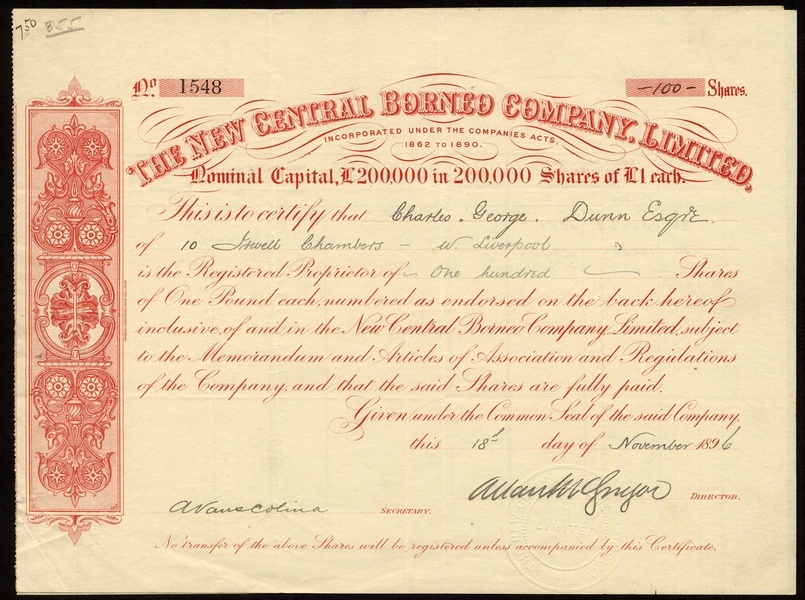 7.50 855
No. 1548 —100— Shares.
THE NEW CENTRAL BORNEO COMPANY, LIMITED,
INCORPORATED UNDER THE COMPANIES ACTS,
1862 TO 1890.
Nominal Capital, £200,000 in 200,000 Shares of £1 each.
This is to certify that Charles. George. Dunn Esqre.
of 10 Irwell Chambers – W Liverpool
is the Registered Proprietor of One hundred Shares
of One Pound each, numbered as endorsed on the back hereof
inclusive, of and in the New Central Borneo Company Limited, subject
to the Memorandum and Articles of Association and Regulations
of the Company, and that the said Shares are fully paid.
Given under the Common Seal of the said Company,
this 18th day of November 1896
DIRECTOR.
SECRETARY.
No transfer of the above Shares will be registered unless accompanied by this Certificate.